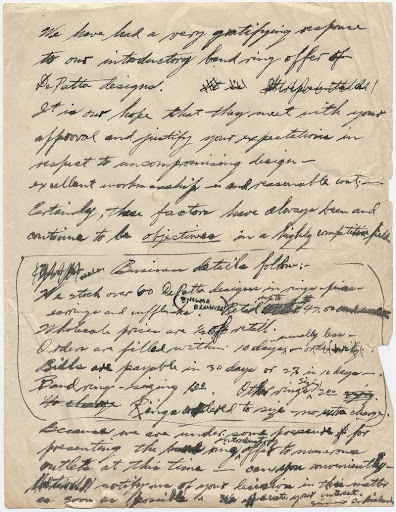 We have had a very gratifying response
to our introductory band ring offer of
De Patta designs.
It is our hope that they meet with your
approval and justify your expectations in
respect to uncompromising design –
excellent workmanship – and reasonable cost; –
Certainly, these factors have always been and
continue to be objectives in a highly competitive field
Business details follow: –
We stock over 60 De Patta designs in rings – pins –
earrings and cufflinks
Wholesale prices are ½ of retail.
Orders are filled within 10 days – usually less –
Bills are payable in 30 days or 2% in 10 days –
Band ring – sizing
Rings ordered to size – no extra charge.
Because we are under some pressure for
presenting the introductory ring offer to numerous
outlets at this time – can you conveniently
notify me of your decision in this matter
as soon as possible – We appreciate your interest.